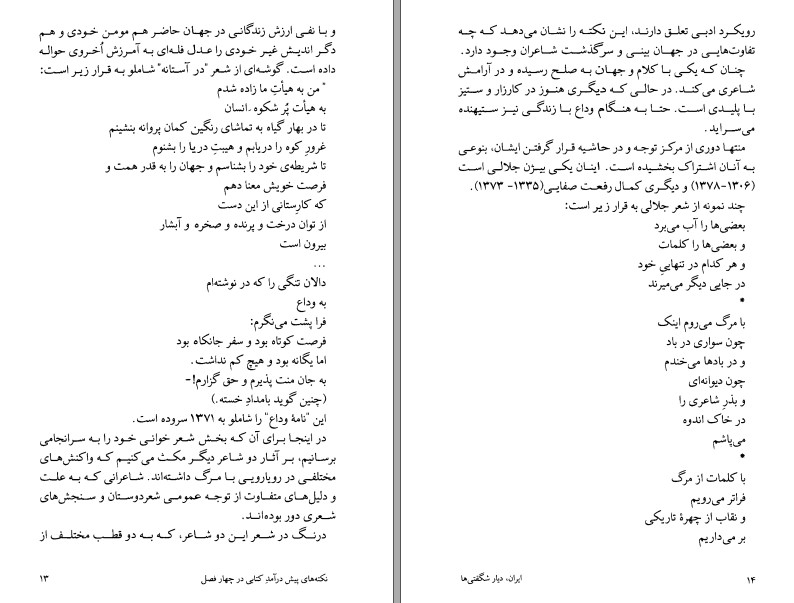 و با نفی ارزش زندگانی در جهان حاضر هم مومن خودی و هم
دگر اندیش غیر خودی را عدل فله‌ای به آمرزش اُخروی حواله
داده است. گوشه‌ای از شعر "در آستانه" شاملو به قرار زیر است:
" من به هیأتِ ما زاده شدم
به هیأت پُر شکوه ِ انسان
تا در بهار گیاه به تماشای رنگین کمان پروانه بنشینم
غرورِ کوه را دریابم و هیبتِ دریا را بشنوم
تا شریطه‌ی خود را بشناسم و جهان را به قدر همت و
فرصت خویش معنا دهم
که کارستانی از این دست
از توان درخت و پرنده و صخره و آبشار
بیرون است
...
دالان تنگی را که در نوشته‌ام
به وداع
فرا پشت می‌نگرم:
فرصت کوتاه بود و سفر جانکاه بود
اما یگانه بود و هیچ کم نداشت.
به جان منت پذیرم و حق گزارم!-
(چنین گوید بامدادِ خسته.)
این "نامۀ وداع" را شاملو به ۱۳۷۱ سروده است.
در اینجا برای آن که بخش شعر خوانی خود را به سرانجامی
برسانیم، بر آثار دو شاعر دیگر مکث می‌کنیم که واکنش‌های
مختلفی در رویارویی با مرگ داشته‌اند. شاعرانی که به علت
و دلیل‌های متفاوت از توجه عمومی شعردوستان و سنجش‌های
شعری دور بوده‌اند.
درنگ در شعر این دو شاعر، که به دو قطب مختلف از
نکته‌های پیش درآمدِ کتابی در چهار فصل ۱۳
رویکرد ادبی تعلق دارند، این نکته را نشان می‌دهد که چه
تفاوت‌هایی در جهان بینی و سرگذشت شاعران وجود دارد.
چنان که یکی با کلام و جهان به صلح رسیده و در آرامش
شاعری می‌کند. در حالی که دیگری هنوز در کارزار و ستیز
با پلیدی است. حتا به هنگام وداع با زندگی نیز ستیهنده
می‌سراید.
منتها دوری از مرکز توجه و در حاشیه قرار گرفتن ایشان، بنوعی
به آنان اشتراک بخشیده است. اینان یکی بیژن جلالی است
(۱۳۰۶-۱۳۷۸) و دیگری کمال رفعت صفایی(۱۳۳۵- ۱۳۷۳).
چند نمونه از شعر جلالی به قرار زیر است:
بعضی‌ها را آب می‌برد
و بعضی‌ها را کلمات
و هر کدام در تنهاییِ خود
در جایی دیگر می‌میرند
*
با مرگ می‌روم اینک
چون سواری در باد
و در بادها می‌خندم
چون دیوانه‌ای
و بذرِ شاعری را
در خاک اندوه
می‌پاشم
*
با کلمات از مرگ
فراتر می‌رویم
و نقاب از چهرۀ تاریکی
بر می‌داریم
ایران، دیار شگفتی‌ها ۱۴